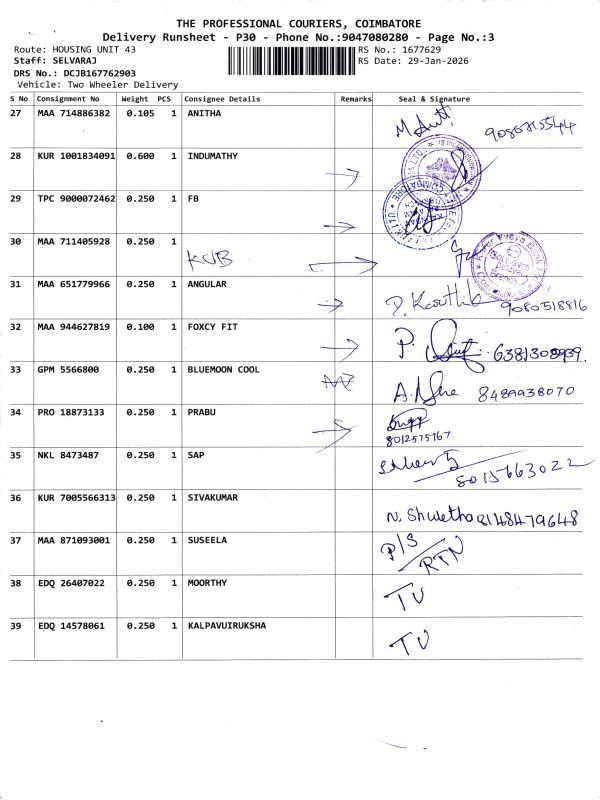 THE PROFESSIONAL COURIERS, COIMBATORE
Delivery Runsheet - P30 - Phone No.:9047080280 - Page No.:3
Route: HOUSING UNIT 43
RS No.: 1677629
Staff: SELVARAJ
RS Date: 29-Jan-2026
DRS No.: DCJB167762903
Vehicle: Two Wheeler Delivery
S No Consignment No Weight PCS Consignee Details Remarks Seal & Signature
27 MAA 714886382 0.105 1 ANITHA
28 KUR 1001834091 0.600 1 INDUMATHY
29 TPC 9000072462 0.250 1 FB
30 MAA 711405928 0.250 1 KVB
31 MAA 651779966 0.250 1 ANGULAR D. Karthik 9080518816
32 MAA 944627819 0.100 1 FOXCY FIT P.
33 GPM 5566800 0.250 1 BLUEMOON COOL 8489938070
34 PRO 18873133 0.250 1 PRABU 8012575767
35 NKL 8473487 0.250 1 SAP 8015663022
36 KUR 7005566313 0.250 1 SIVAKUMAR N. Shwetha 8148479648
37 MAA 871093001 0.250 1 SUSEELA P/S RTN
38 EDQ 26407022 0.250 1 MOORTHY TV
39 EDQ 14578061 0.250 1 KALPAVUIRUKSHA TV